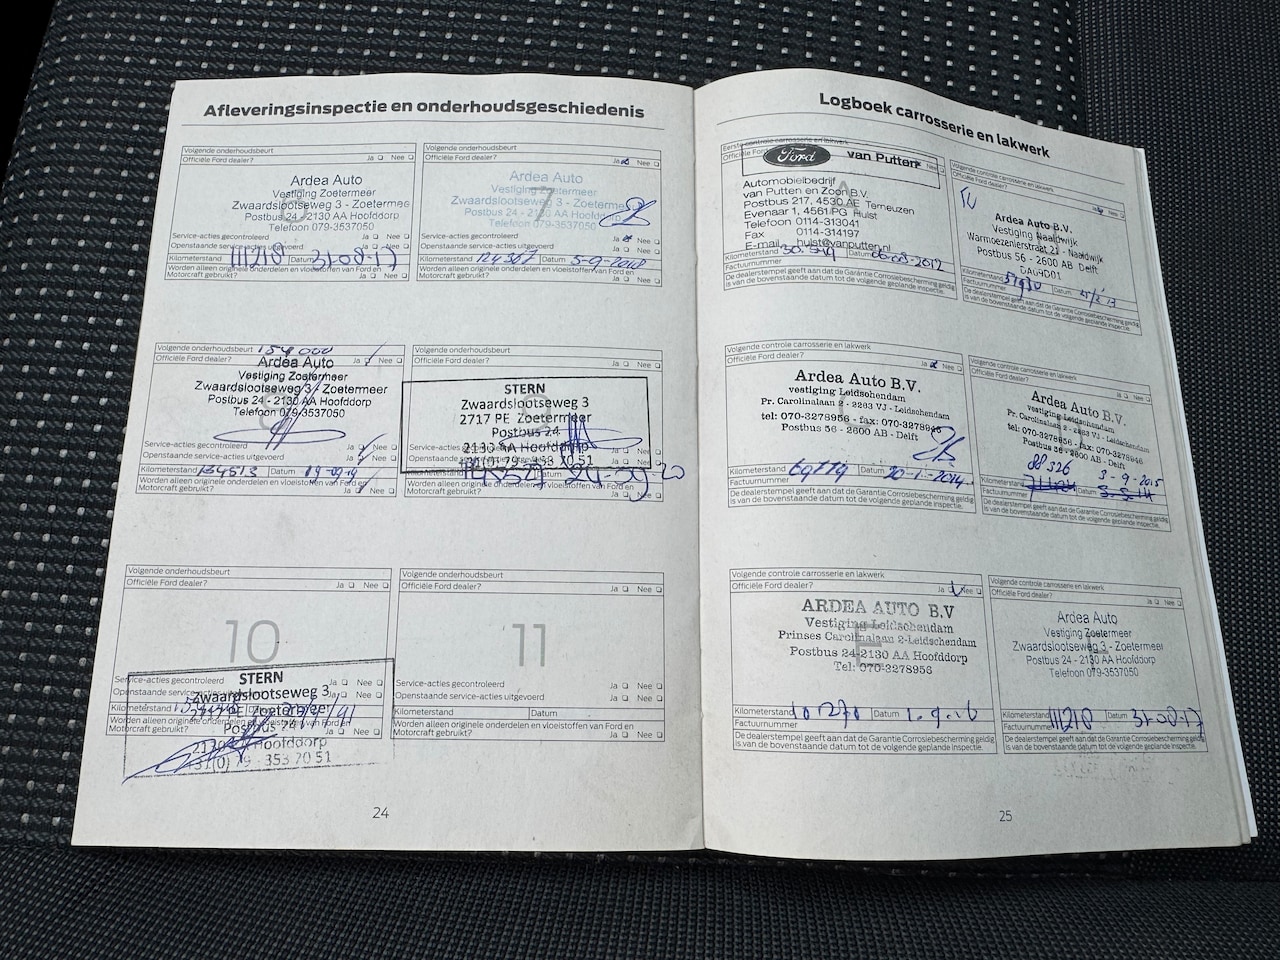 Afleveringsinspectie en onderhoudsgeschiedenis
Volgende onderhoudsbeurt
Officiële Ford dealer? Ja Nee
Ardea Auto
Vestiging Zoetermeer
Zwaardslootseweg 3 - Zoetermeer
Postbus 24 - 2130 AA Hoofddorp
Telefoon 079-3537050
Service-acties gecontroleerd Ja Nee
Openstaande service-acties uitgevoerd Ja Nee
Kilometerstand 111218 Datum 31-08-17
Worden alleen originele onderdelen en vloeistoffen van Ford en
Motorcraft gebruikt? Ja Nee
Volgende onderhoudsbeurt
Officiële Ford dealer? Ja Nee
7
Ardea Auto
Vestiging Zoetermeer
Zwaardslootseweg 3 - Zoetermeer
Postbus 24 - 2130 AA Hoofddorp
Telefoon 079-3537050
Service-acties gecontroleerd Ja Nee
Openstaande service-acties uitgevoerd Ja Nee
Kilometerstand Datum 5-9-2018
Worden alleen originele onderdelen en vloeistoffen van Ford en
Motorcraft gebruikt? Ja Nee
Volgende onderhoudsbeurt 154000
Officiële Ford dealer? Ja Nee
Ardea Auto
Vestiging Zoetermeer
Zwaardslootseweg 3 - Zoetermeer
Postbus 24 - 2130 AA Hoofddorp
Telefoon 079-3537050
Service-acties gecontroleerd Ja Nee
Openstaande service-acties uitgevoerd Ja Nee
Kilometerstand 134513 Datum
Worden alleen originele onderdelen en vloeistoffen van Ford en
Motorcraft gebruikt? Ja Nee
Volgende onderhoudsbeurt
Officiële Ford dealer? Ja Nee
9
STERN
Zwaardslootseweg 3
2717 PE Zoetermeer
Postbus 24
2130 AA Hoofddorp
31(0) 79 - 353 70 51
Service-acties gecontroleerd
Kilometerstand Datum
Worden alleen originele onderdelen en vloeistoffen van Ford en
Motorcraft gebruikt? Ja Nee
Volgende onderhoudsbeurt
Officiële Ford dealer? Ja Nee
10
Service-acties gecontroleerd Ja Nee
Openstaande service-acties Ja Nee
Kilometerstand
Worden alleen originele onderdelen en vloeistoffen van Ford en
Motorcraft gebruikt? Ja Nee
STERN
Zwaardslootseweg 3
Zoetermeer
Postbus 24
2130 AA Hoofddorp
31(0) 79 - 353 70 51
Volgende onderhoudsbeurt
Officiële Ford dealer? Ja Nee
11
Service-acties gecontroleerd Ja Nee
Openstaande service-acties uitgevoerd Ja Nee
Kilometerstand Datum
Worden alleen originele onderdelen en vloeistoffen van Ford en
Motorcraft gebruikt? Ja Nee
24
Logboek carrosserie en lakwerk
Eerste controle carrosserie en lakwerk
Officiële Ford Nee
Ford van Putten
Automobielbedrijf
van Putten en Zoon B.V.
Postbus 217, 4530 AE Terneuzen
Evenaar 1, 4561 PG Hulst
Telefoon 0114-313041
Fax 0114-314197
E-mail hulst@vanputten.nl
Kilometerstand 30.549 Datum 06-08-2012
Factuurnummer
De dealerstempel geeft aan dat de Garantie Corrosiebescherming geldig
is van de bovenstaande datum tot de volgende geplande inspectie.
Volgende controle carrosserie en lakwerk
Officiële Ford dealer? Ja Nee
Ardea Auto B.V.
Vestiging Naaldwijk
Warmoezenierstraat 21 - Naaldwijk
Postbus 56 - 2600 AB Delft
Kilometerstand Datum
Factuurnummer
De dealerstempel geeft aan dat de Garantie Corrosiebescherming geldig
is van de bovenstaande datum tot de volgende geplande inspectie.
Volgende controle carrosserie en lakwerk
Officiële Ford dealer? Ja Nee
C
Ardea Auto B.V.
vestiging Leidschendam
Pr. Carolinalaan 2 - 2263 VJ - Leidschendam
tel: 070-3278956 - fax: 070-3278946
Postbus 56 - 2600 AB - Delft
Kilometerstand 69779 Datum 20-1-2014
Factuurnummer
De dealerstempel geeft aan dat de Garantie Corrosiebescherming geldig
is van de bovenstaande datum tot de volgende geplande inspectie.
Volgende controle carrosserie en lakwerk
Officiële Ford dealer? Ja Nee
Ardea Auto B.V.
vestiging Leidschendam
Pr. Carolinalaan 2 - 2263 VJ - Leidschendam
tel: 070-3278956 - fax: 070-3278946
Postbus 56 - 2600 AB - Delft
88326 3-9-2015
Kilometerstand Datum
Factuurnummer
De dealerstempel geeft aan dat de Garantie Corrosiebescherming geldig
is van de bovenstaande datum tot de volgende geplande inspectie.
Volgende controle carrosserie en lakwerk
Officiële Ford dealer? Ja Nee
E
ARDEA AUTO B.V
Vestiging Leidschendam
Prinses Carolinalaan 2-Leidschendam
Postbus 24-2130 AA Hoofddorp
Tel: 070-3278956
Kilometerstand Datum 1.9.16
Factuurnummer
De dealerstempel geeft aan dat de Garantie Corrosiebescherming geldig
is van de bovenstaande datum tot de volgende geplande inspectie.
Volgende controle carrosserie en lakwerk
Officiële Ford dealer? Ja Nee
Ardea Auto
Vestiging Zoetermeer
Zwaardslootseweg 3 - Zoetermeer
Postbus 24 - 2130 AA Hoofddorp
Telefoon 079-3537050
Kilometerstand 111218 Datum 31-08-17
Factuurnummer
De dealerstempel geeft aan dat de Garantie Corrosiebescherming geldig
is van de bovenstaande datum tot de volgende geplande inspectie.
25